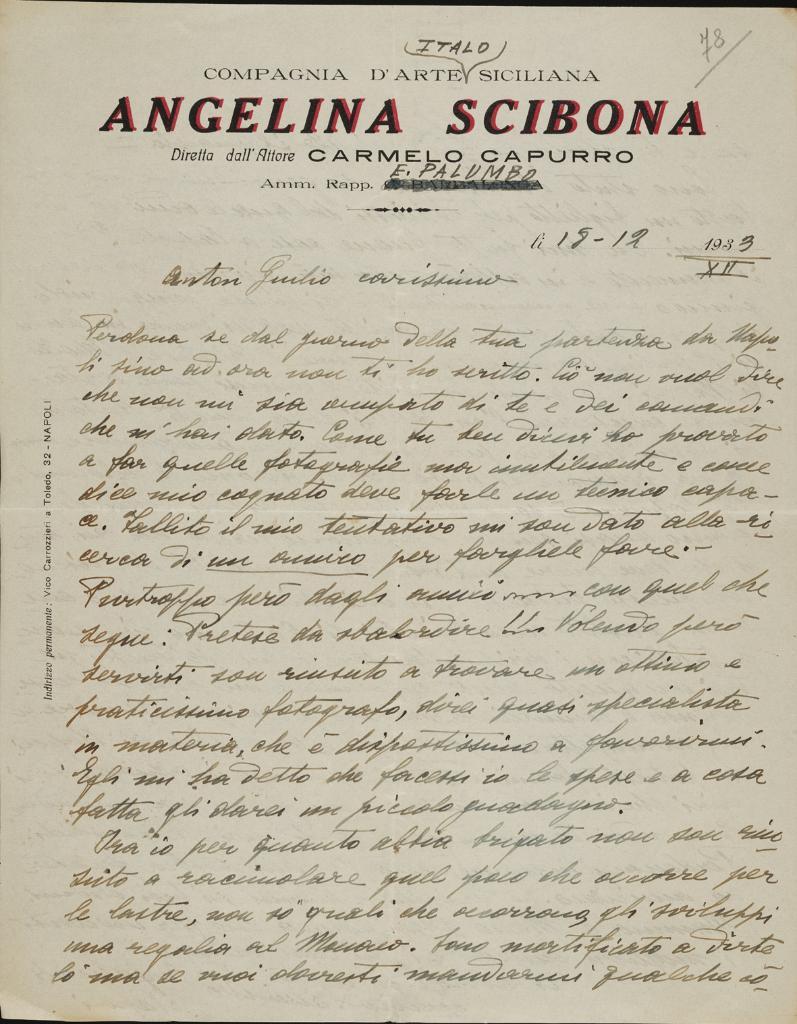 78/
(ITALO)
COMPAGNIA D'ARTE SICILIANA
ANGELINA SCIBONA
Diretta dall'Attore CARMELO CAPURRO
E. PALUMBO
Amm. Rapp.
li 18-12 1933
XII
Anton Giulio carissimo
Perdona se dal giorno della tua partenza da Napo-
li sino ad ora non ti ho scritto. Ciò non vuol dire
che non mi sia occupato di te e dei comandi
che mi hai dato. Come tu ben dicevi ho provato
a far quelle fotografie ma inutilmente e come
dice mio cognato deve farle un tecnico capa-
ce. Fallito il mio tentativo mi son dato alla ri-
cerca di un amico per fargliele fare.-
Purtroppo però dagli amici ...... con quel che
segue: Pretese da sbalordire!!... Volendo però
servirti son riuscito a trovare un ottimo e
praticissimo fotografo, direi quasi specialista
in materia, che è dispostissimo a favorirmi.
Egli mi ha detto che facessi io le spese e a cosa
fatta gli darei un piccolo guadagno.
Ora io per quanto abbia brigato non son riu-
scito a racimolare quel poco che occorre per
le lastre, non so quali che occorrono, gli sviluppi
una regalia al Monaco. Sono mortificato a dirte
lo ma se vuoi dovresti mandarmi qualche
Indirizzo permanente: Vico Carrozzieri a Toledo, 32 - NAPOLI